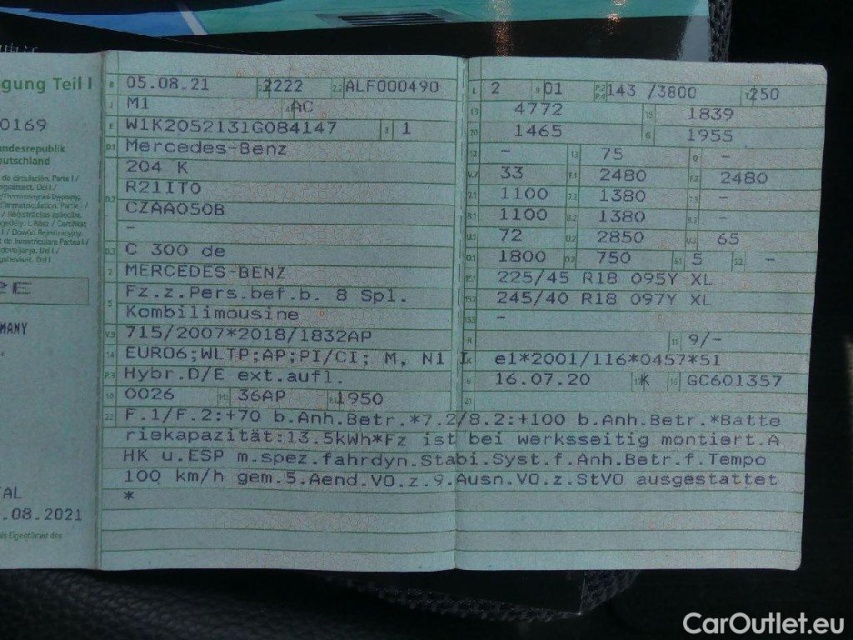 gung Teil I
0169
undesrepublik
eutschland
2E
MANY
AL
.08.2021
05.08.21 2222 ALF000490
M1 AC
W1K2052131G084147 1
Mercedes-Benz
204 K
R2IIT0
CZAA050B
-
C 300 de
MERCEDES-BENZ
Fz.z.Pers.bef.b. 8 Spl.
Kombilimousine
715/2007*2018/1832AP
EURO6;WLTP;AP;PI/CI; M, N1 I
Hybr.D/E ext.aufl.
0026 36AP 1950
2 01 143 /3800 250
4772 1839
1465 1955
- 75 -
33 2480 2480
1100 1380 -
1100 1380 -
72 2850 65
1800 750 5 -
225/45 R18 095Y XL
245/40 R18 097Y XL
-
9/-
e1*2001/116*0457*51
16.07.20 K GC601357
F.1/F.2:+70 b.Anh.Betr.*7.2/8.2:+100 b.Anh.Betr.*Batte
riekapazität:13.5kWh*Fz ist bei werksseitig montiert.A
HK u.ESP m.spez.fahrdyn.Stabi.Syst.f.Anh.Betr.f.Tempo
100 km/h gem.5.Aend.VO.z.9.Ausn.VO.z.StVO ausgestattet
*
CarOutlet.eu